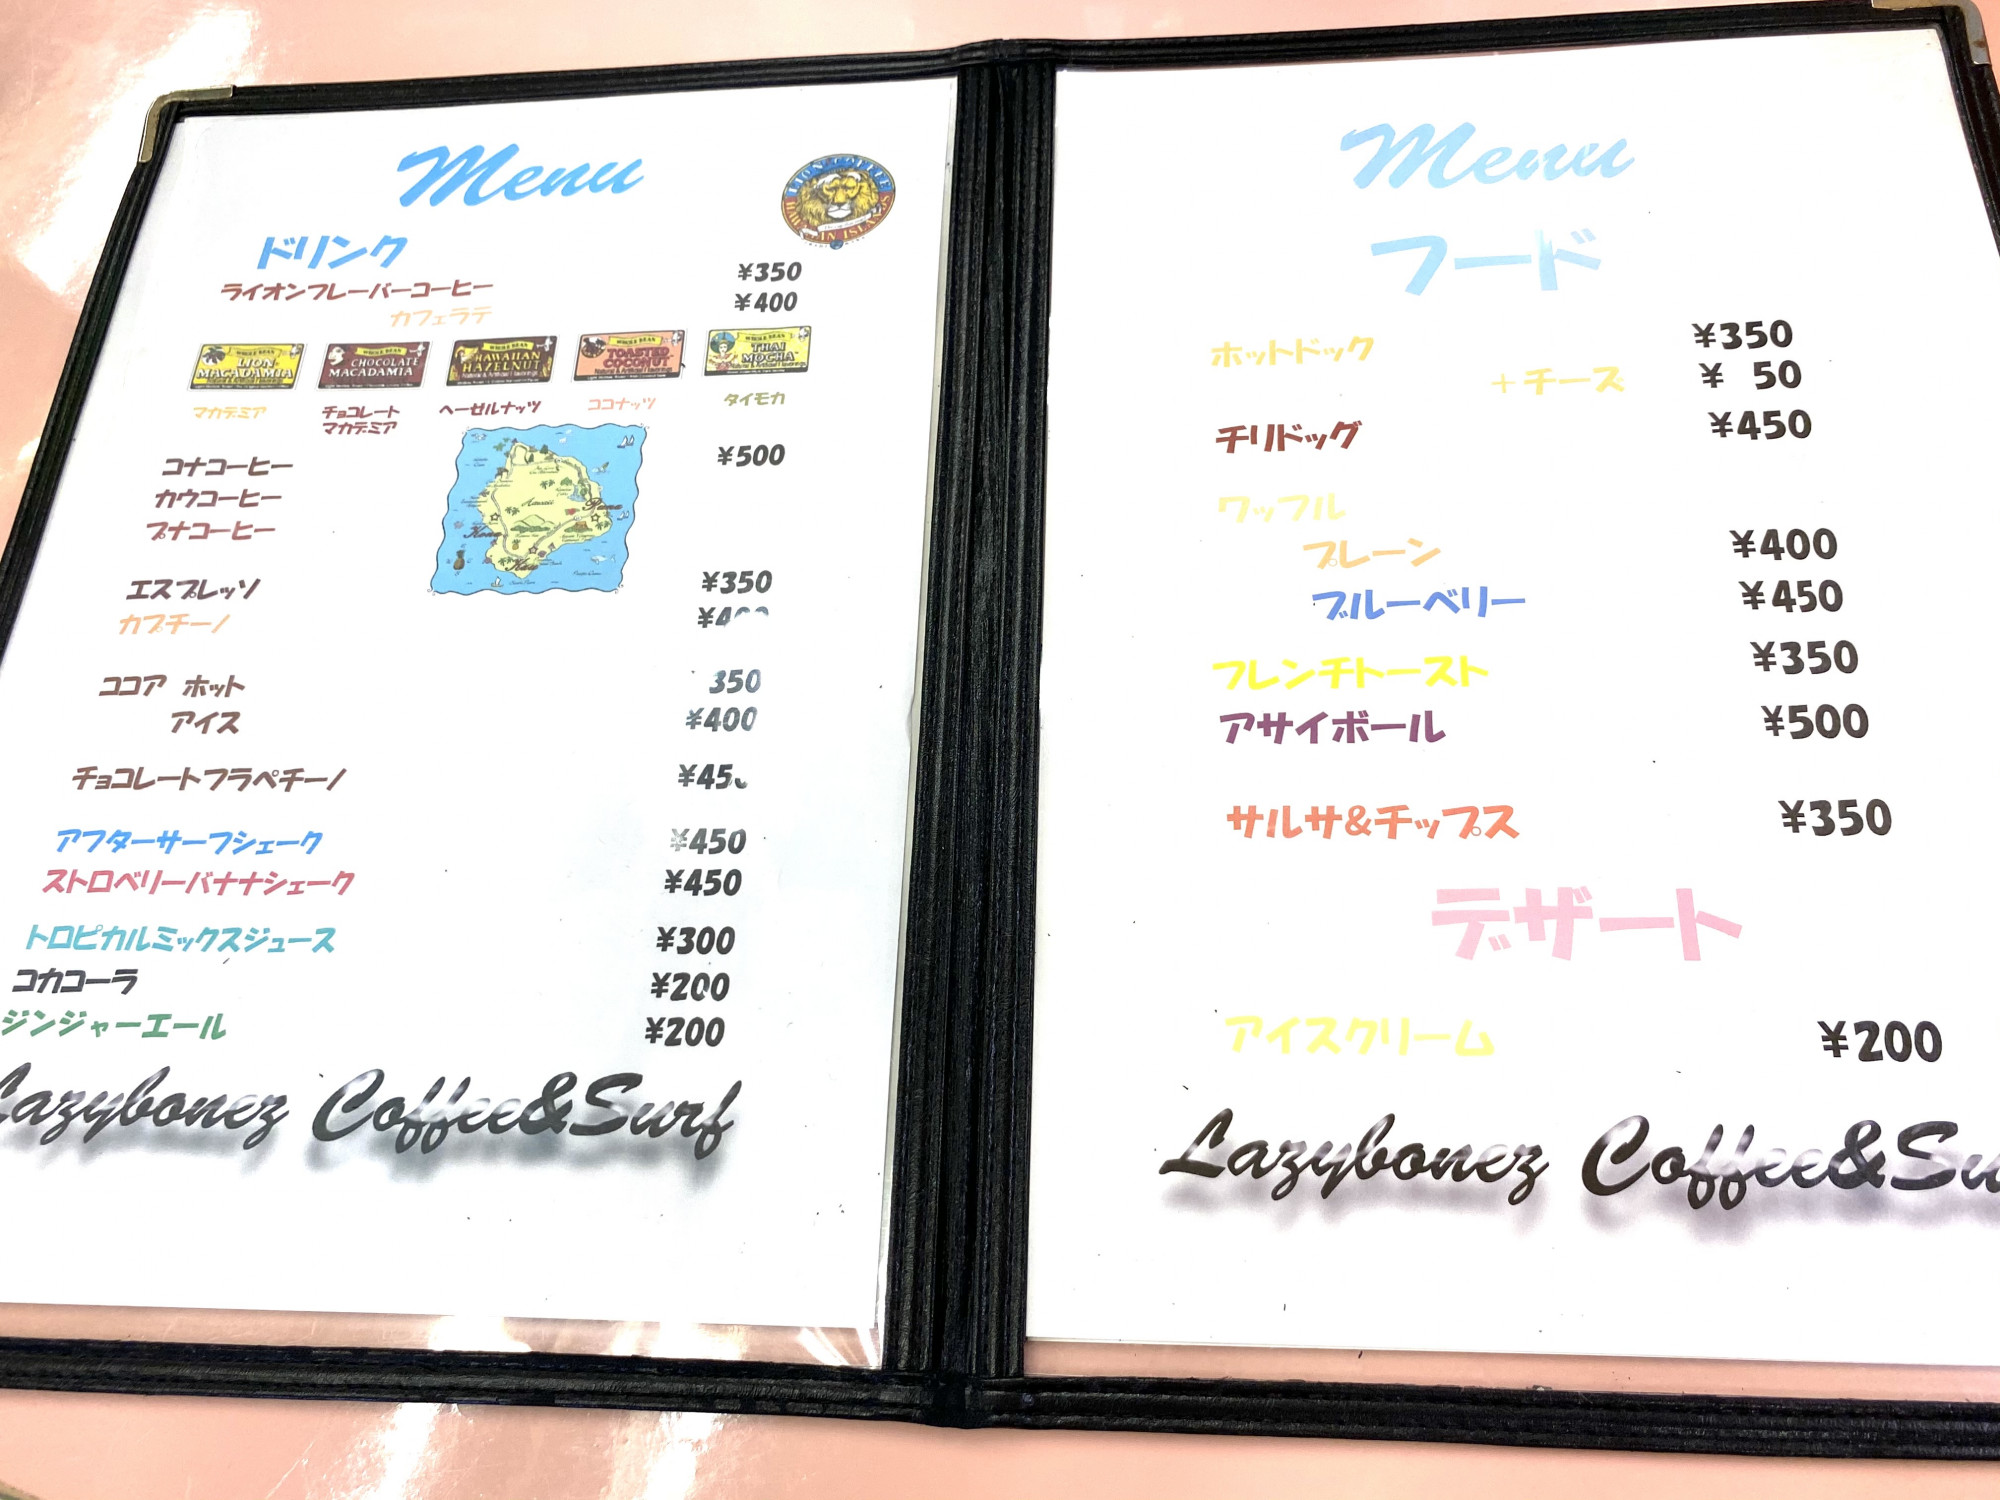 Menu
LION COFFEE
HAWAIIAN ISLANDS
ドリンク
ライオンフレーバーコーヒー ¥350
カフェラテ ¥400
WHOLE BEAN WHOLE BEAN WHOLE BEAN WHOLE BEAN WHOLE BEAN
LION MACADAMIA CHOCOLATE MACADAMIA HAWAIIAN HAZELNUT TOASTED COCONUT THAI MOCHA
マカデミア チョコレート ヘーゼルナッツ ココナッツ タイモカ
マカデミア
コナコーヒー ¥500
カウコーヒー
プナコーヒー
Hawaii
Puna
Kona
Kau
エスプレッソ ¥350
カプチーノ ¥400
ココア ホット 350
アイス ¥400
チョコレートフラペチーノ ¥450
アフターサーフシェーク ¥450
ストロベリーバナナシェーク ¥450
トロピカルミックスジュース ¥300
コカコーラ ¥200
ジンジャーエール ¥200
Lazybonez Coffee&Surf
Menu
フード
ホットドック ¥350
+チース ¥ 50
チリドッグ ¥450
ワッフル
プレーン ¥400
ブルーベリー ¥450
フレンチトースト ¥350
アサイボール ¥500
サルサ&チップス ¥350
デザート
アイスクリーム ¥200
Lazybonez Coffee&Su